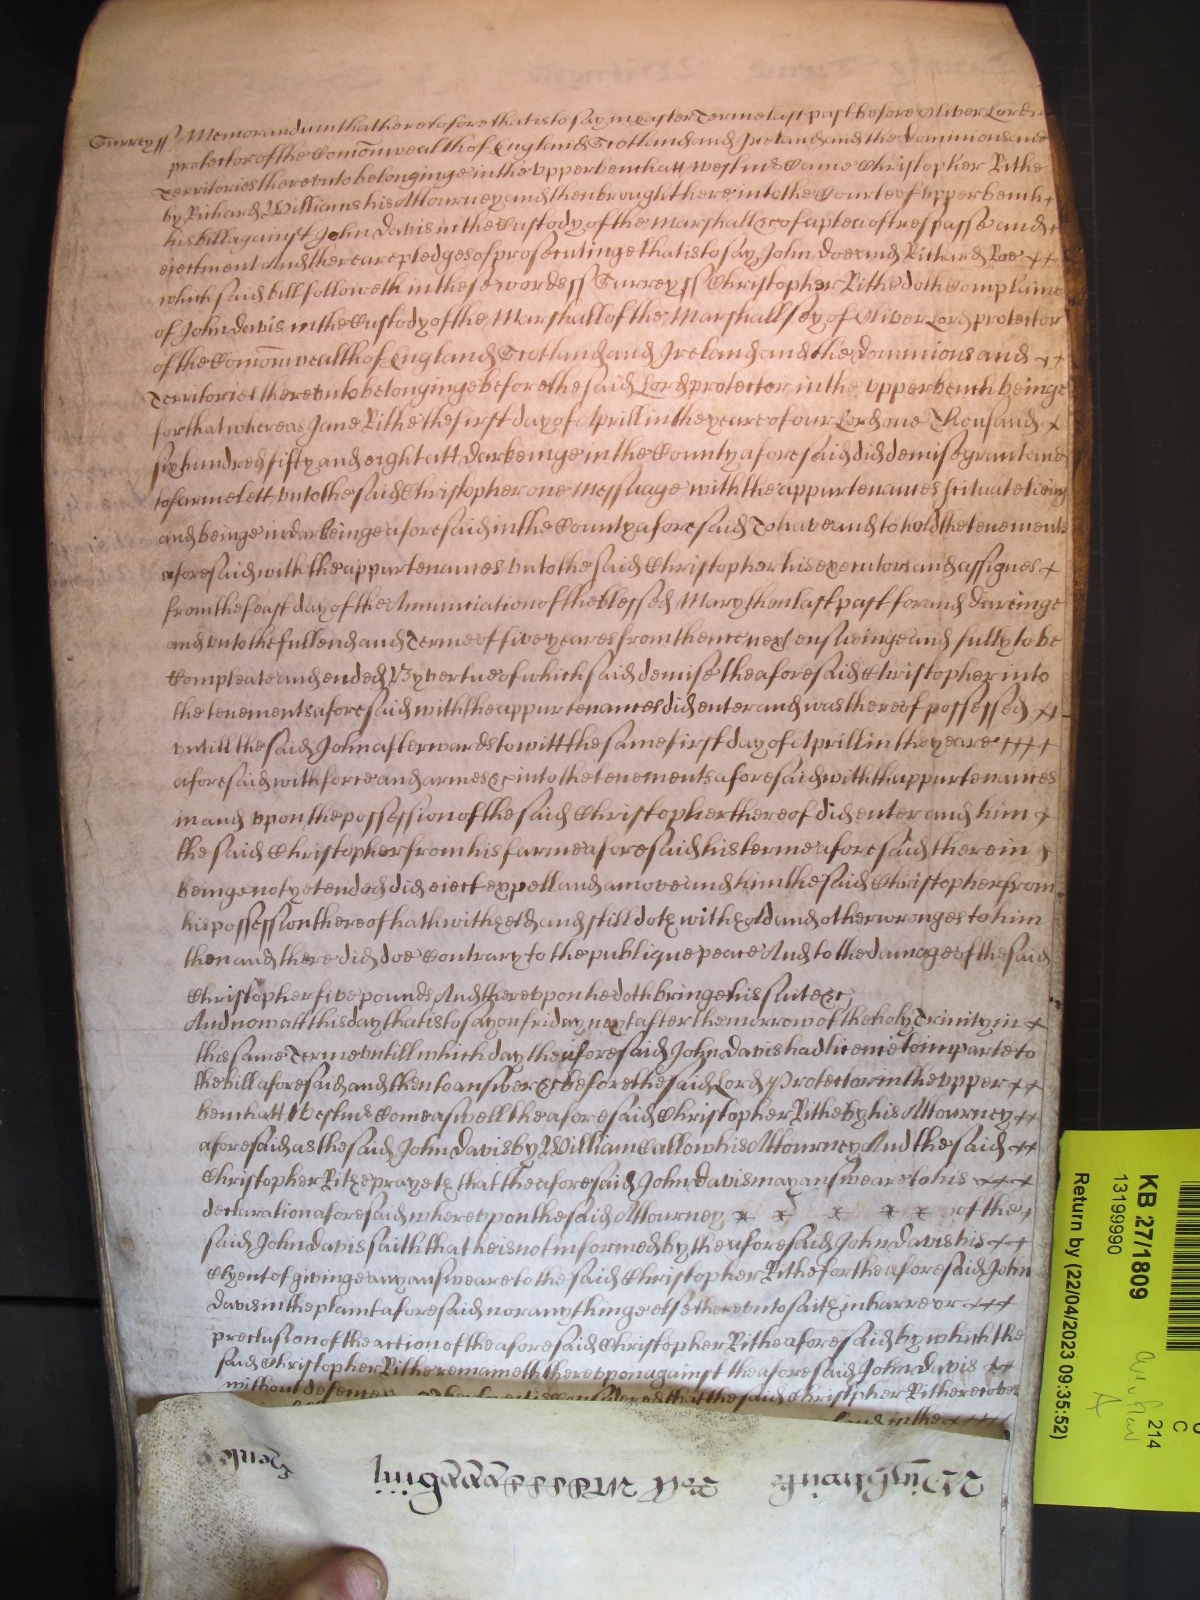 Surrey ss Memorandum that heretofore that is to say in Easter Terme last past before Oliver Lord
protector of the Comonwealth of England Scotland and Ireland and the dominions and
Territories thereunto belonginge in the upper bench att Westmr Came Christopher Rithe
by Richard Williams his Attourney and then brought here into the Courte of upper bench
his bill against John Davis in the Custody of the Marshall &c of a plea of trespasse and
eiectment And there are pledges of prosecutinge that is to say John doe and Richard Roe
which said bill followeth in these words ss Surrey ss Christopher Rithe doth Complaine
of John davis in the Custody of the Marshall of the Marshallsey of Oliver Lord protector
of the Comonwealth of England Scotland and Ireland and the dominions and
Territories thereunto belonginge before the said Lord protector in the upper bench beinge
for that whereas Jane Rithe the first day of Aprill in the yeare of our Lord one Thousand
six hundred fifty and eight att darkeinge in the County aforesaid did demise grant and
to farme lett unto the said Christopher one Messuage with the appurtenances scituate lieing
and beinge in darkeinge aforesaid in the County aforesaid To have and to hold the tenements
aforesaid with the appurtenances unto the said Christopher his executors and assignes
from the feast day of the Annunciation of the blessed Mary then last past for and dureinge
and unto the full end and Terme of five yeares from thence next ensueinge and fully to be
Compleate and ended By vertue of which said demise the aforesaid Christopher into
the tenements aforesaid with the appurtenances did enter and was thereof possessed
untill the said John afterwards to witt the same first day of Aprill in the yeare
aforesaid with force and armes &c into the tenements aforesaid with thappurtenances
in and upon the possession of the said Christopher thereof did enter and him
the said Christopher from his farme aforesaid his terme aforesaid therein
beinge not yet ended did eiect expell and amove and him the said Christopher from
his possession thereof hath withheld and still doth withhold and other wronges to him
then and there did doe Contrary to the publique peace And to the damage of the said
Christopher five pounds And thereupon he doth bringe his suite &c
And now att this day that is to say on friday next after the morrow of the holy Trinity in
this same Terme untill which day the aforesaid John Davis had licence to imparle to
the bill aforesaid and then to answer &c before the said Lord Protector in the upper
bench att Westmr Come aswell the aforesaid Christopher Rithe by his Attourney
aforesaid as the said John davis by William Callow his Attourney And the said
Christopher Rithe prayeth that the aforesaid John davis may answeare to his
declaration aforesaid whereupon the said Attourney of the
said John davis saith that he is not informed by the aforesaid John davis his
Clyent of givinge any answeare to the said Christopher Rithe for the aforesaid John
davis in the plaint aforesaid nor any thinge else thereunto saith in barre or
preclusion of the action of the aforesaid Christopher Rithe aforesaid by which the
said Christopher Rithe remaineth thereupon against the aforesaid John davis
without defence Considered that the said Christopher Rithe recover
and in the
KB 27/1809
13199990
Return by (22/04/2023 09:35:52)
214
C